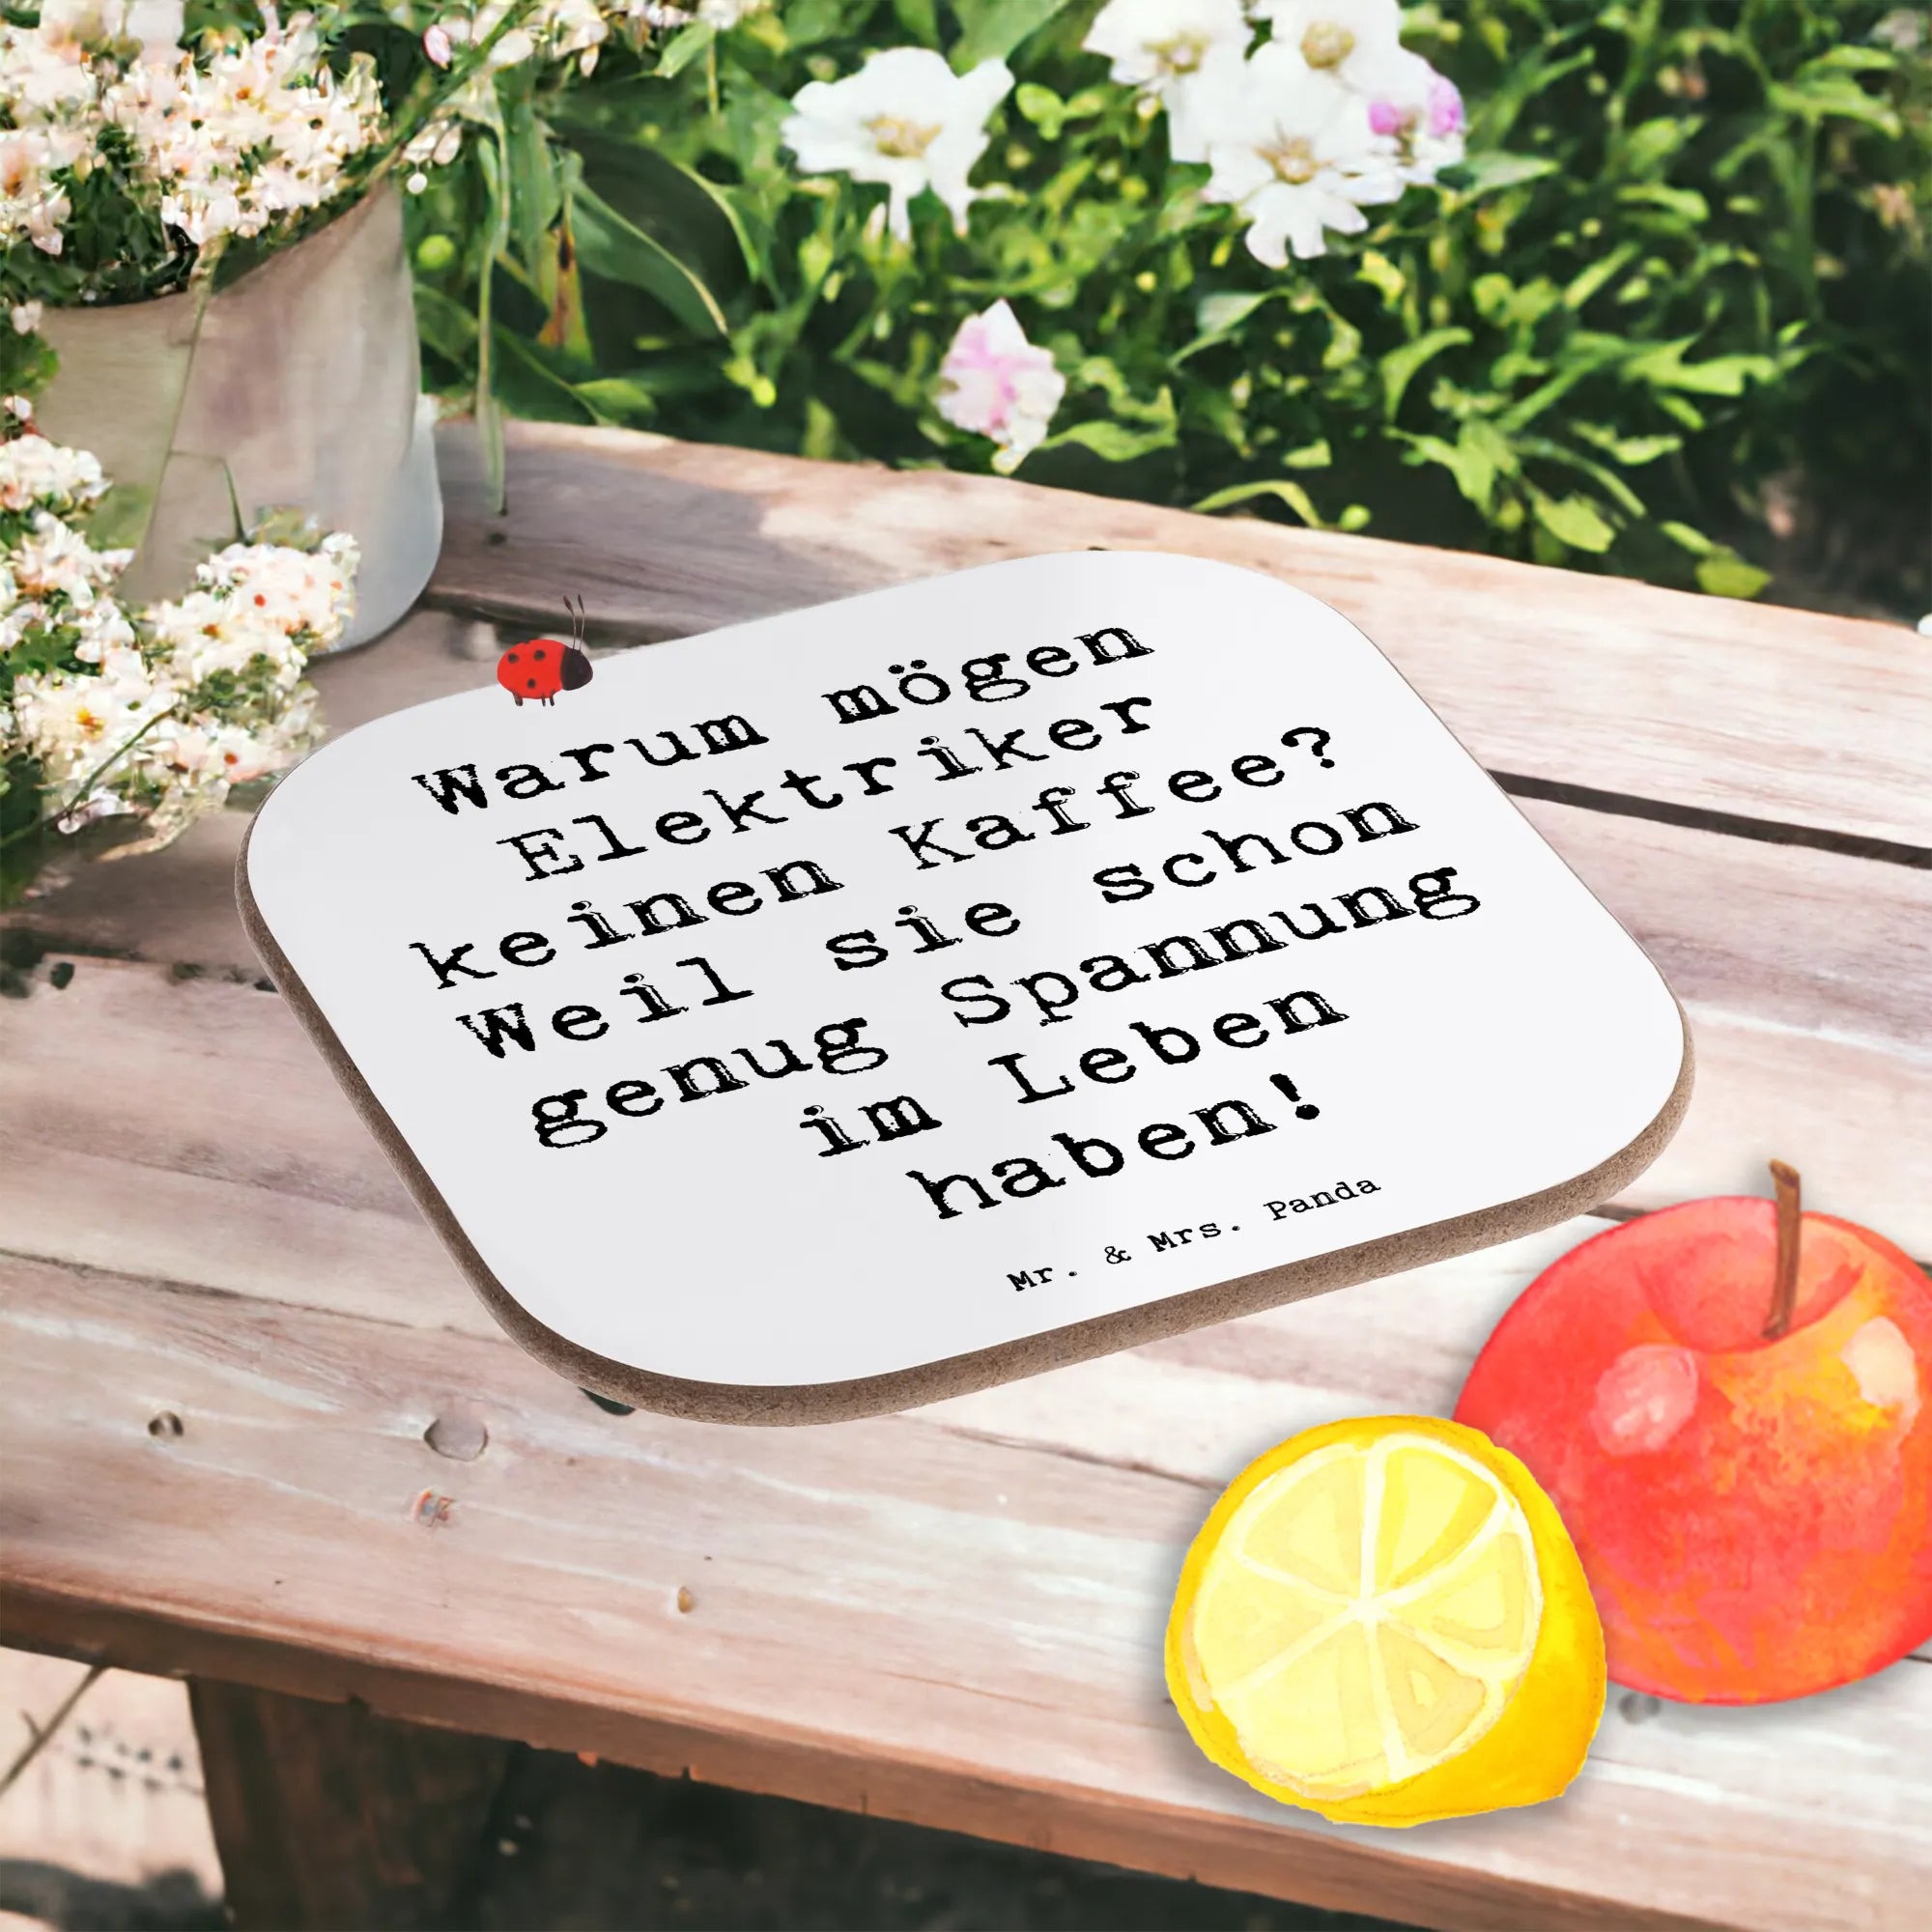 Warum mögen
Elektriker
keinen Kaffee?
Weil sie schon
genug Spannung
im Leben
haben!
Mr. & Mrs. Panda